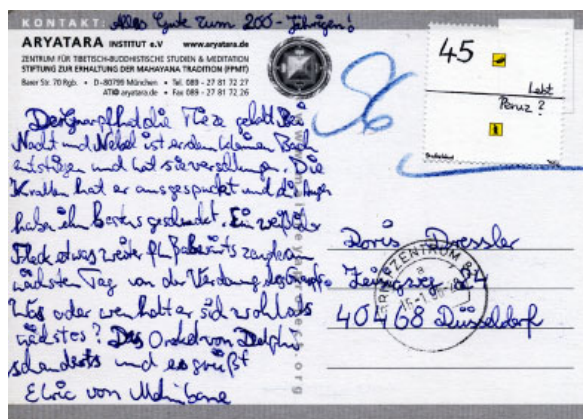 KONTAKT: Alles Gute zum 200-Jährigen!
ARYATARA INSTITUT e.V www.aryatara.de
ZENTRUM FÜR TIBETISCH-BUDDHISTISCHE STUDIEN & MEDITATION
STIFTUNG ZUR ERHALTUNG DER MAHAYANA TRADITION (FPMT)
Barer Str. 70 Rgb. • D-80799 München • Tel. 089 - 27 81 72 27
ATI@aryatara.de • Fax 089 - 27 81 72 26
45
Lebt
Peruz?
Deutschland
Der die Tieze geholt. Bei
Nacht und Nebel ist er dem kleinen Bach
entstiegen und hat sie verschlungen. Die
Krallen hat er ausgespuckt und die Augen
haben ihm bestens geschmeckt. Ein weißlicher
Fleck etwas weiter flußabwärts zeugte am
nächsten Tag von der Verdauung des
Was oder wen holt er sich wohl als
nächstes? Das Orakel von Delphi
und es grüßt
Elric von Melnibone
Doris Dressler
24
40468 Düsseldorf
BRIEFZENTRUM